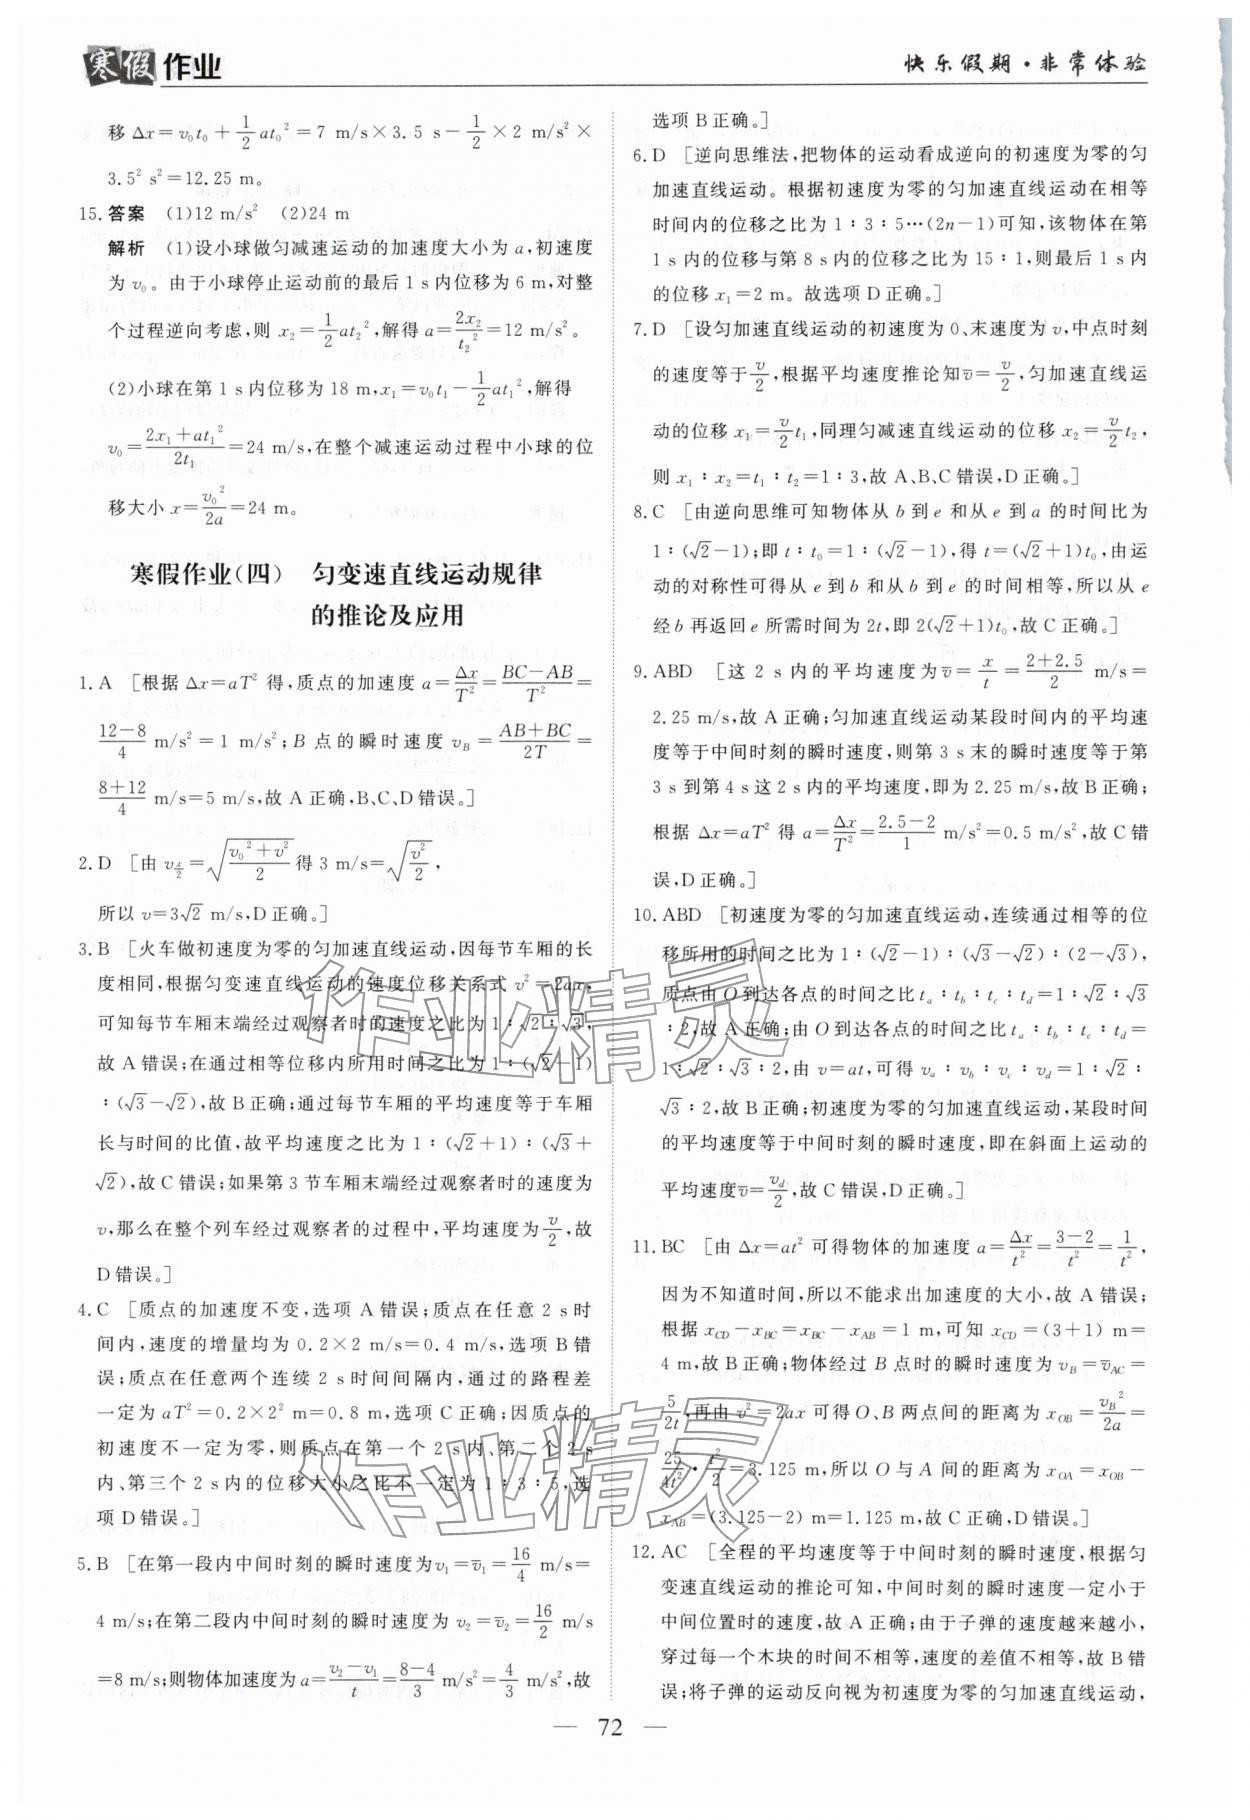 寒假作业
快乐假期·非常体验
移 Δx=v₀t₀+1/2 at₀²=7 m/s×3.5 s-1/2×2 m/s²×
3.5² s²=12.25 m。
15.答案 (1)12 m/s² (2)24 m
解析 (1)设小球做匀减速运动的加速度大小为a,初速度
为v₀。由于小球停止运动前的最后1 s内位移为6 m,对整
个过程逆向考虑,则 x₂=1/2 at₂²,解得 a=2x₂/t₂²=12 m/s²。
(2)小球在第1 s内位移为18 m,x₁=v₀t₁-1/2 at₁²,解得
v₀=(2x₁+at₁²)/2t₁=24 m/s,在整个减速运动过程中小球的位
移大小 x=v₀²/2a=24 m。
寒假作业(四) 匀变速直线运动规律
的推论及应用
1.A [根据 Δx=aT² 得,质点的加速度 a=Δx/T²=(BC-AB)/T²=
(12-8)/4 m/s²=1 m/s²;B 点的瞬时速度 v_B=(AB+BC)/2T=
(8+12)/4 m/s=5 m/s,故 A 正确,B、C、D 错误。]
2.D [由 v_(x/2)=√((v₀²+v²)/2)得 3 m/s=√(v²/2),
所以 v=3√2 m/s,D 正确。]
3.B [火车做初速度为零的匀加速直线运动,因每节车厢的长
度相同,根据匀变速直线运动的速度位移关系式 v²=2ax,
可知每节车厢末端经过观察者时的速度之比为 1∶√2∶√3,
故 A 错误;在通过相等位移内所用时间之比为 1∶(√2-1)
∶(√3-√2),故 B 正确;通过每节车厢的平均速度等于车厢
长与时间的比值,故平均速度之比为 1∶(√2+1)∶(√3+
√2),故 C 错误;如果第 3 节车厢末端经过观察者时的速度为
v,那么在整个列车经过观察者的过程中,平均速度为v/2,故
D 错误。]
4.C [质点的加速度不变,选项 A 错误;质点在任意 2 s 时
间内,速度的增量均为 0.2×2 m/s=0.4 m/s,选项 B 错
误;质点在任意两个连续 2 s 时间间隔内,通过的路程差
一定为 aT²=0.2×2² m=0.8 m,选项 C 正确;因质点的
初速度不一定为零,则质点在第一个 2 s内、第二个 2 s
内、第三个 2 s 内的位移大小之比不一定为 1∶3∶5,选
项 D 错误。]
5.B [在第一段内中间时刻的瞬时速度为v₁=v̄₁=16/4 m/s=
4 m/s;在第二段内中间时刻的瞬时速度为 v₂=v̄₂=16/2 m/s
=8 m/s;则物体加速度为 a=(v₂-v₁)/t=(8-4)/3 m/s²=4/3 m/s²,故
选项 B 正确。]
6.D [逆向思维法,把物体的运动看成逆向的初速度为零的匀
加速直线运动。根据初速度为零的匀加速直线运动在相等
时间内的位移之比为 1∶3∶5…(2n-1)可知,该物体在第
1 s 内的位移与第 8 s 内的位移之比为 15∶1,则最后 1 s 内
的位移 x₁=2 m。故选项 D 正确。]
7.D [设匀加速直线运动的初速度为 0、末速度为 v,中点时刻
的速度等于v/2,根据平均速度推论知v̄=v/2,匀加速直线运
动的位移 x₁=v/2 t₁,同理匀减速直线运动的位移 x₂=v/2 t₂,
则 x₁∶x₂=t₁∶t₂=1∶3,故 A、B、C 错误,D 正确。]
8.C [由逆向思维可知物体从 b 到 e 和从 e 到 a 的时间比为
1∶(√2-1);即 t∶t₀=1∶(√2-1),得 t=(√2+1)t₀,由运
动的对称性可得从 e 到 b 和从 b 到 e 的时间相等,所以从 e
经 b 再返回 e 所需时间为 2t,即 2(√2+1)t₀,故 C 正确。]
9.ABD [这 2 s 内的平均速度为 v̄=x/t=(2+2.5)/2 m/s=
2.25 m/s,故 A 正确;匀加速直线运动某段时间内的平均速
度等于中间时刻的瞬时速度,则第 3 s 末的瞬时速度等于第
3 s 到第 4 s 这 2 s 内的平均速度,即为 2.25 m/s,故 B 正确;
根据 Δx=aT² 得 a=Δx/T²=(2.5-2)/1 m/s²=0.5 m/s²,故 C 错
误,D 正确。]
10.ABD [初速度为零的匀加速直线运动,连续通过相等的位
移所用的时间之比为 1∶(√2-1)∶(√3-√2)∶(2-√3),
质点由 O 到达各点的时间之比 t_a∶t_b∶t_c∶t_d=1∶√2∶√3
∶2,故 A 正确;由 O 到达各点的时间之比 t_a∶t_b∶t_c∶t_d=
1∶√2∶√3∶2,由 v=at,可得 v_a∶v_b∶v_c∶v_d=1∶√2∶
√3∶2,故 B 正确;初速度为零的匀加速直线运动,某段时间
的平均速度等于中间时刻的瞬时速度,即在斜面上运动的
平均速度v̄=v_d/2,故 C 错误,D 正确。]
11.BC [由 Δx=at² 可得物体的加速度 a=Δx/t²=(3-2)/t²=1/t²,
因为不知道时间,所以不能求出加速度的大小,故 A 错误;
根据 x_CD-x_BC=x_BC-x_AB=1 m,可知 x_CD=(3+1) m=
4 m,故 B 正确;物体经过 B 点时的瞬时速度为 v_B=v̄_AC=
5/2t,再由 v²=2ax 可得 O、B 两点间的距离为 x_OB=v_B²/2a=
25/4t²·t²/2=3.125 m,所以 O 与 A 间的距离为 x_OA=x_OB-
x_AB=(3.125-2) m=1.125 m,故 C 正确,D 错误。]
12.AC [全程的平均速度等于中间时刻的瞬时速度,根据匀
变速直线运动的推论可知,中间时刻的瞬时速度一定小于
中间位置时的速度,故 A 正确;由于子弹的速度越来越小,
穿过每一个木块的时间不相等,速度的差值不相等,故 B 错
误;将子弹的运动反向视为初速度为零的匀加速直线运动,
— 72 —
作业精灵
作业精灵